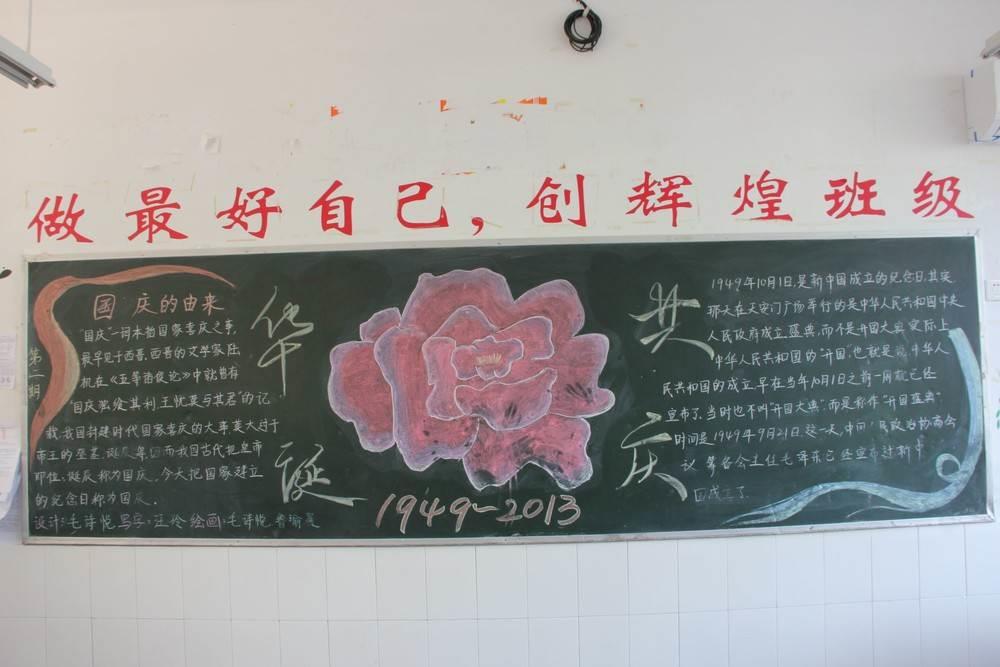 做最好自己，创辉煌班级
第二期
国庆的由来
"国庆"一词本指国家喜庆之事,
最早见于西晋.西晋的文学家陆
机在《五等诸侯论》中就曾有
"国庆独飨其利,主忧莫与其害"的记
载.我国封建时代国家喜庆的大事莫大过于
帝王的登基.诞辰等.因而我国古代把皇帝
即位.诞辰称为国庆.今天把国家建立
的纪念日称为国庆.
设计:毛诗悦 写字:汪伶 绘画:毛诗悦
华诞
1949~2013
共庆
1949年10月1日,是新中国成立的纪念日,其实
那天在天安门广场举行的是中华人民共和国中央
人民政府成立盛典,而不是开国大典.实际上
中华人民共和国的"开国",也就是说,中华人
民共和国的成立早在当年10月1日之前一周就已经
宣布了.当时也不叫"开国大典",而是称作"开国盛典"
时间是1949年9月21日.这一天,中国人民政治协商会
议筹备会主任毛泽东已经宣布过新中
国成立了